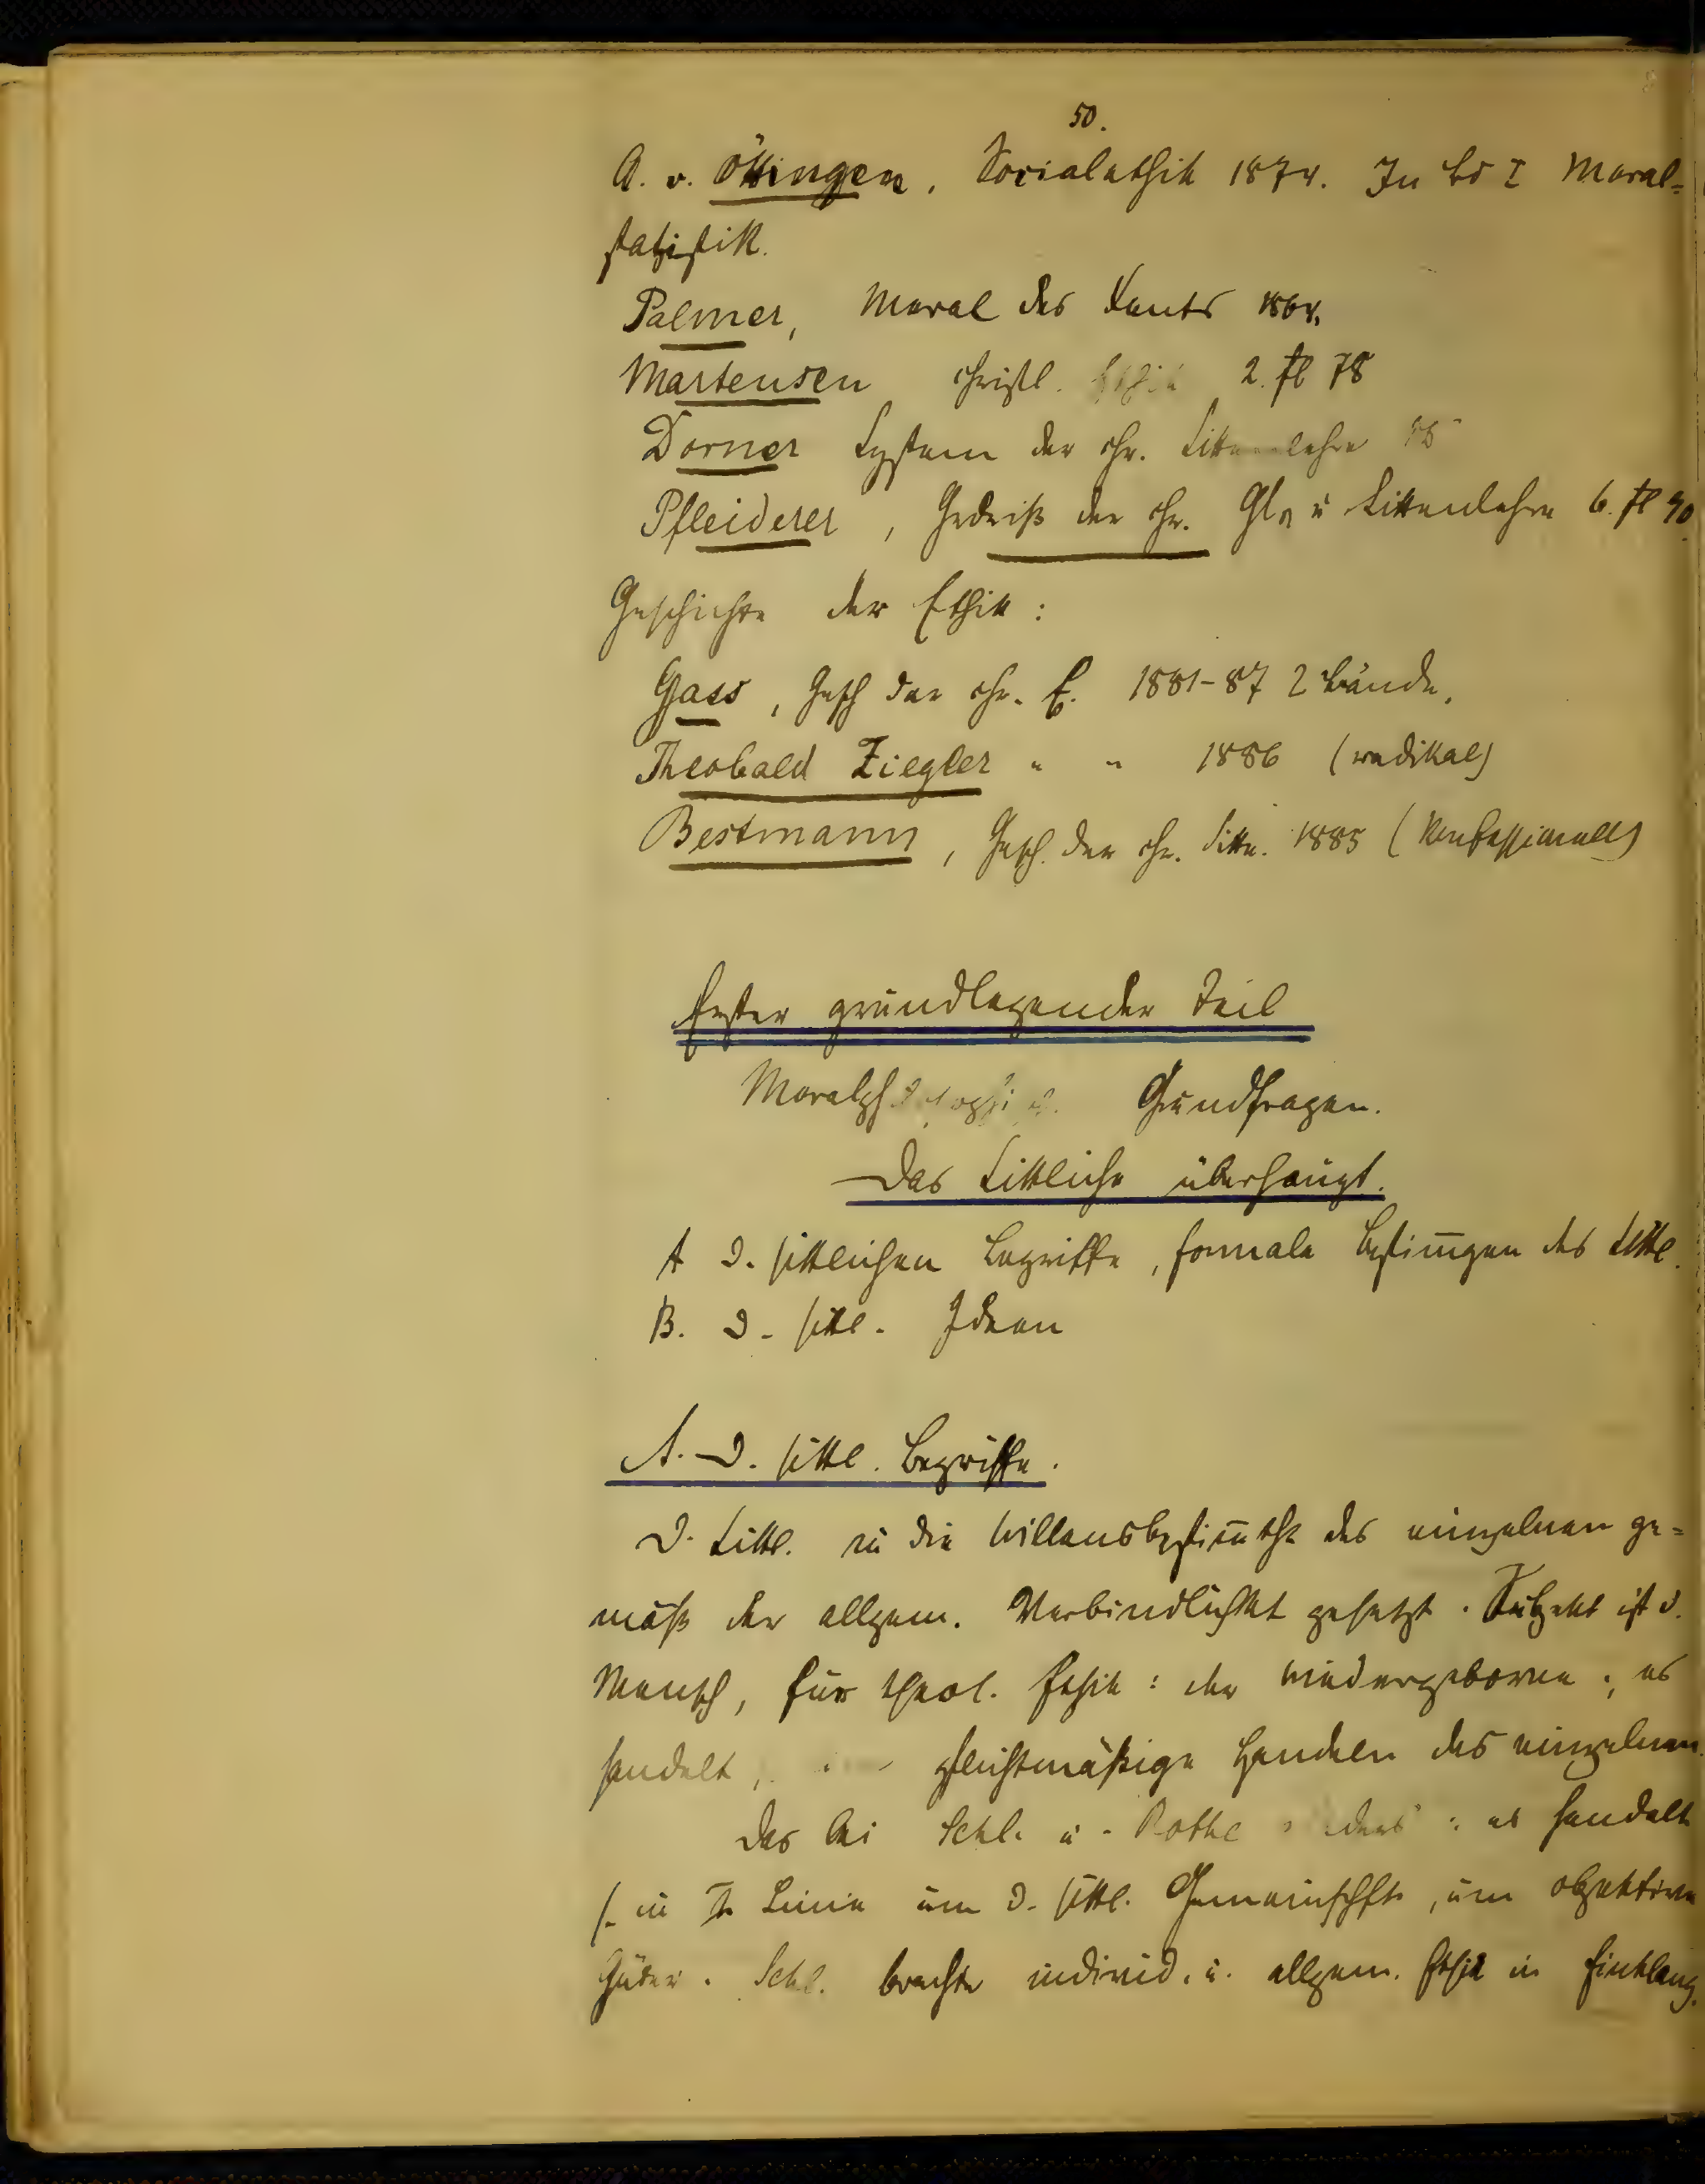 50.
A. v. Öttingen, Socialethik 1874. In Bd I Moral-
statistik.
Palmer, Moral des Xents 1864.
Martensen christl. Ethik 2. Fl 78
Dorner System der chr. Sittenlehre
Pfleiderer, Grdriß der chr. Gls u Sittenlehre 6. Fl 90
Geschichte der Ethik:
Gass, Gesch der chr. E. 1881-87 2 Bände.
Theobald Ziegler " " 1886 (radikal)
Bestmann, Gesch. der chr. Sitte. 1885 (konfessionell)
Erster grundlegender Teil
Moralphilosophisch. Grundfragen.
Das Sittliche überhaupt.
A D. sittlichen Begriffe, formale Bestimgen des Sittl.
B. D. sittl. Ideen
A. D. sittl. Begriffe.
D. Sittl. in die Willensbestimtht des einzelnen ge-
mäß der allgem. Verbindlichkt gesetzt. Subjekt ist d.
Mensch, für theol. Ethik: der wiedergeborene; es
handelt, pflichtmäßige Handeln des einzelnen.
Das bei Schl. u. Rothe anders: es handelt
s. in Linie um d. sittl. Gemeinschft, um objektive
Güter. Schl. brachte individ. u. allgem. Ethik in Einklang.